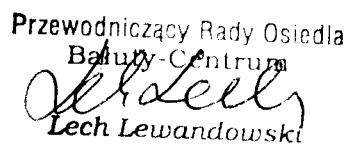 Przewodniczący Rady Osiedla
Bałuty-Centrum
Lech Lewandowski